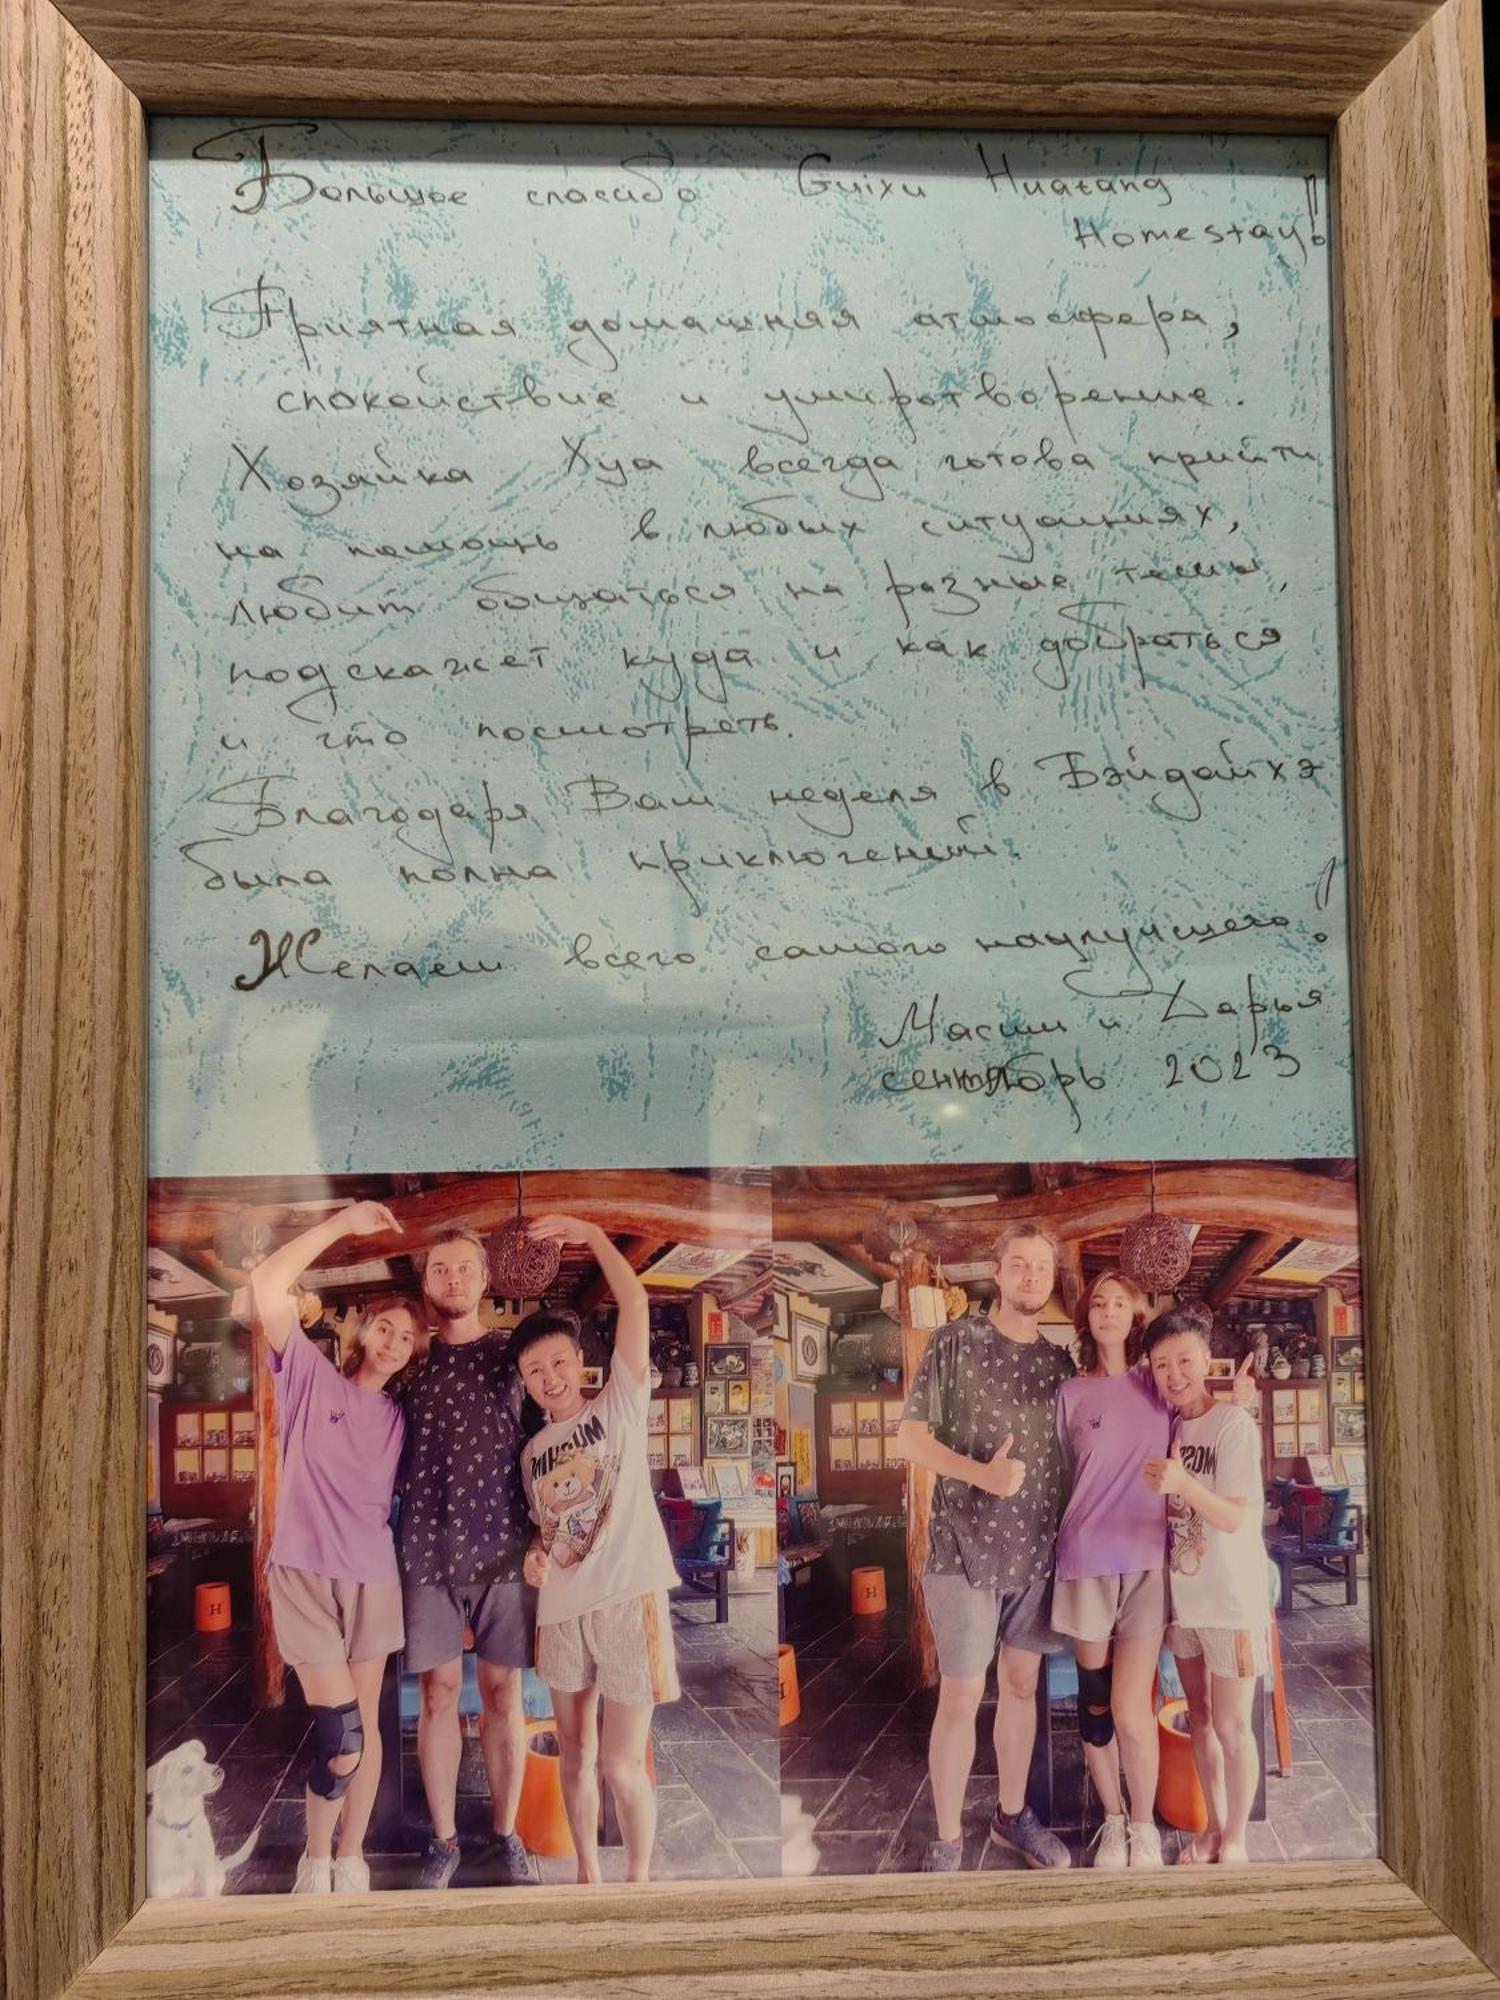 Большое спасибо Guixu Huatang
Homestay!
Приятная домашняя атмосфера,
спокойствие и умиротворение.
Хозяйка Хуа всегда готова прийти
на помощь в любых ситуациях,
любит общаться на разные темы,
подскажет куда и как добраться
и что посмотреть.
Благодаря Вам неделя в Бэйдайхэ
была полна приключений.
Желаем всего самого наилучшего!
и Дарья
сентябрь 2023
H